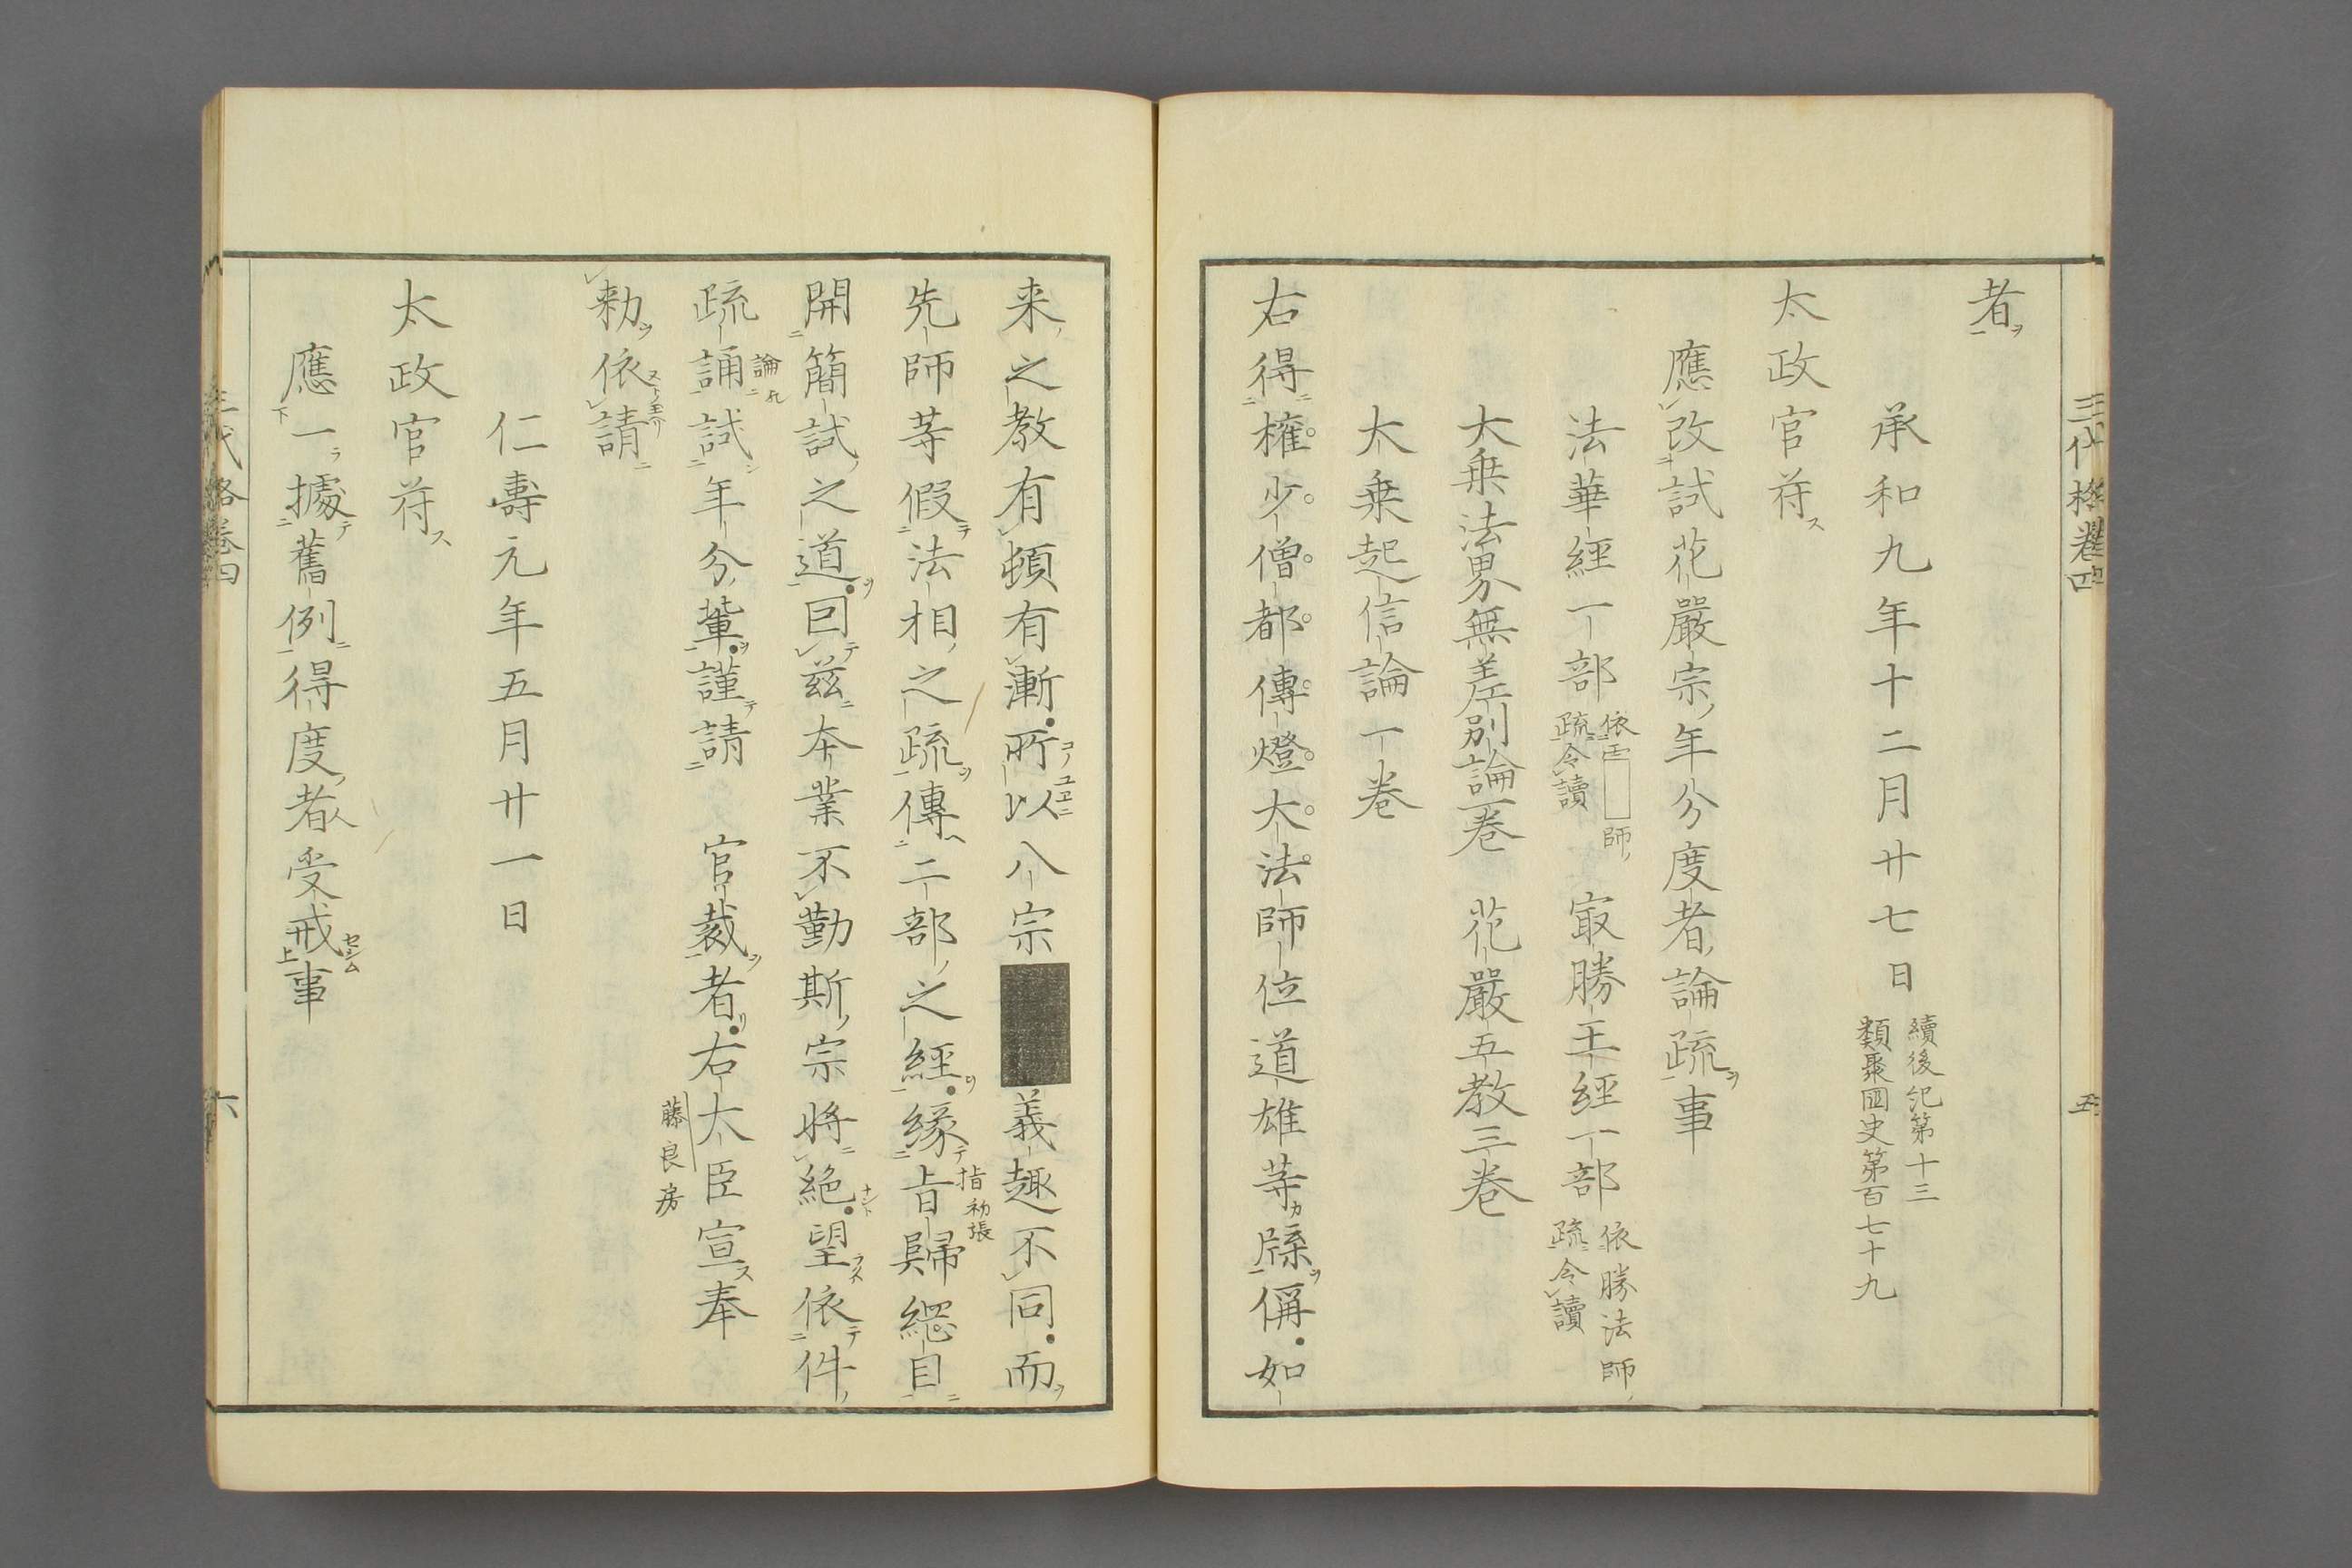 三代格卷四
五
者
承和九年十二月廿七日
續後紀第十三
類聚國史第百七十九
太政官符
應改試花嚴宗年分度者論疏事
法華經一部
依
師
疏令讀
冣勝王經一部
依勝法師
疏令讀
大乗法界無差別論一卷　花嚴五教三卷
大乗起信論一卷
右得権少僧都傳燈大法師位道雄等牒偁如
来之教有頓有漸所以八宗
義趣不同而
先師等假法相之疏傳二部之經縁旨歸綱目
指
初張
開簡試之道因茲本業不勤斯宗將絶望依件
疏誦試年分輩謹請　官裁者右大臣宣奉
論
藤良房
勅依請
仁壽元年五月廿一日
太政官符
應一據舊例得度者受戒事
三代格卷四
六